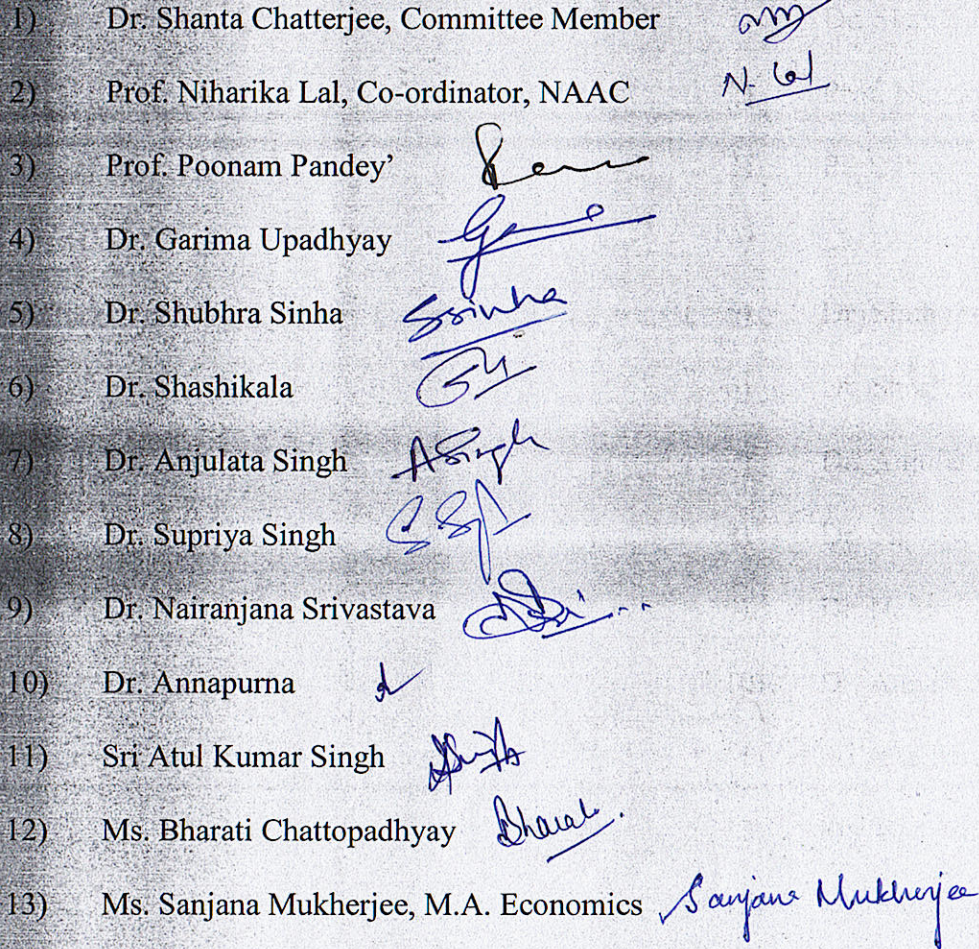 1) Dr. Shanta Chatterjee, Committee Member
2) Prof. Niharika Lal, Co-ordinator, NAAC N. Lal
3) Prof. Poonam Pandey’
4) Dr. Garima Upadhyay
5) Dr. Shubhra Sinha Ssinha
6) Dr. Shashikala
7) Dr. Anjulata Singh ASingh
8) Dr. Supriya Singh
9) Dr. Nairanjana Srivastava
10) Dr. Annapurna
11) Sri Atul Kumar Singh
12) Ms. Bharati Chattopadhyay Bharati
13) Ms. Sanjana Mukherjee, M.A. Economics Sanjana Mukherjee